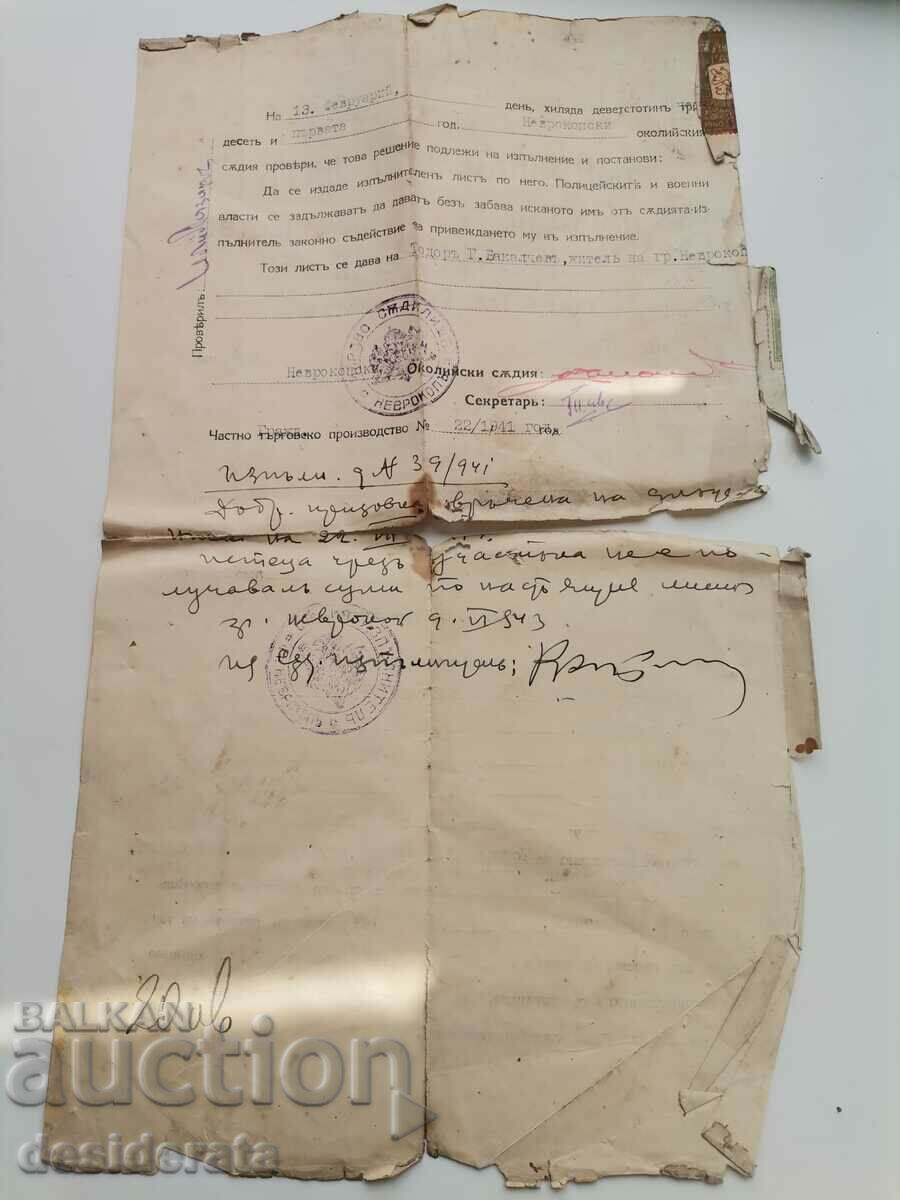 На 13. Февруарий, день, хиляда деветстотинъ
десеть и първата год. Неврокопски околийския
сѫдия провѣри, че това решение подлежи на изпълнение и постанови:
Да се издаде изпълнителенъ листъ по него. Полицейскитѣ и военни
власти се задължаватъ да даватъ безъ забава исканото имъ отъ сѫдията-из-
пълнитель законно съдействие за привеждането му въ изпълнение.
Този листъ се дава на Тодоръ Г. Бакалчевъ, житель на гр. Неврокоп
Провѣрилъ:
Неврокопски Околийски сѫдия:
Секретарь:
Частно търговско производство № 22/1941 год
Гражд.
изпълн. д № 39/941
на 22. III
чрезъ участъка не е по-
лучавалъ суми по настоящия листъ
гр. Неврокопъ 9. VI 943
СѪДИЛИЩЕ
НЕВРОКОПЪ
20 лв
BALKAN
auction
desiderata